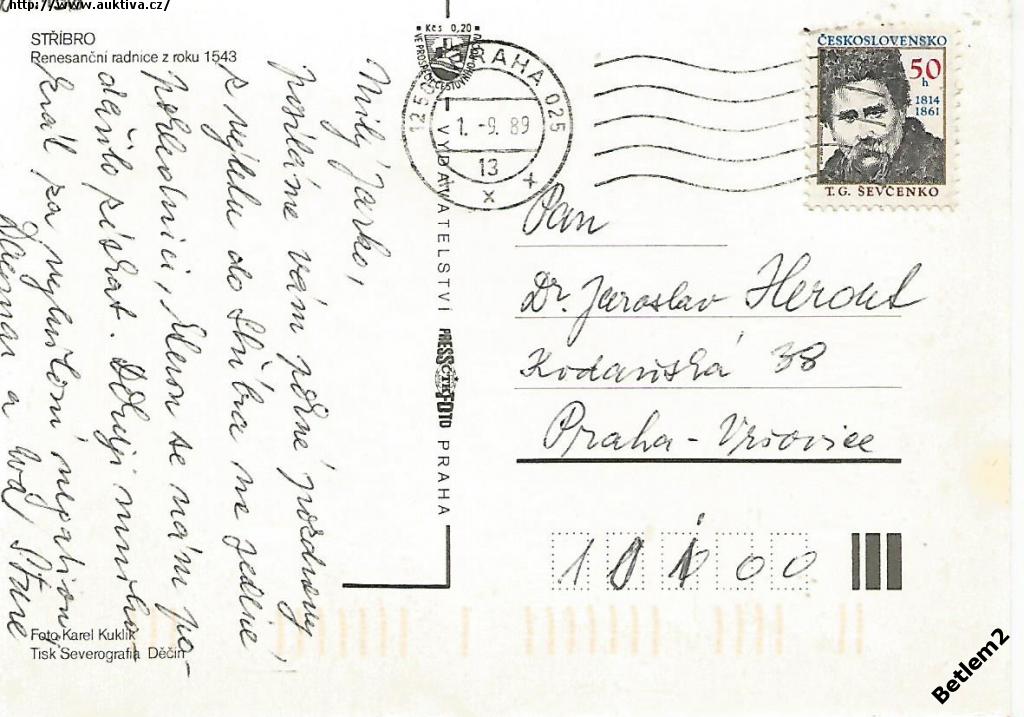 http://www.auktiva.cz/
STŘÍBRO
Renesanční radnice z roku 1543
Milý Jarko,
posíláme vám pěkné pozdravy
z výletu do Stříbra na jedné
pohlednici, kterou se nám po-
dařilo získat. Děkuji mnoho
krát za
Dagmar a
Foto Karel Kuklík
Tisk Severografia Děčín
Kčs 0,20
VE PROSPĚCH CESTOVNÍHO RUCHU
VYDAVATELSTVÍ PRESSFOTO PRAHA
ČTK
PRAHA 025
1.-9.89
13
ČESKOSLOVENSKO
50 h
1814
1861
T.G. ŠEVČENKO
Pan
Dr. Jaroslav Herout
Kodaňská 38
Praha-Vršovice
10100
Betlem2